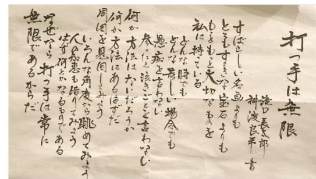 打つ手は無限
滝口長太郎
すばらしい名画よりも
とてもすてきな宝石よりも
もっともっと大切なものを
私は持っている
どんな時でも
どんな苦しい場合でも
愚痴を言わない
参ったと泣きごとを言わない
何か方法はないだろうか
何か方法はあるはずだ
周囲を見回してみよう
いろんな角度から眺めてみよう
人の知恵も借りてみよう
必ず何とかなるものである
なぜなら打つ手は常に
無限であるからだ